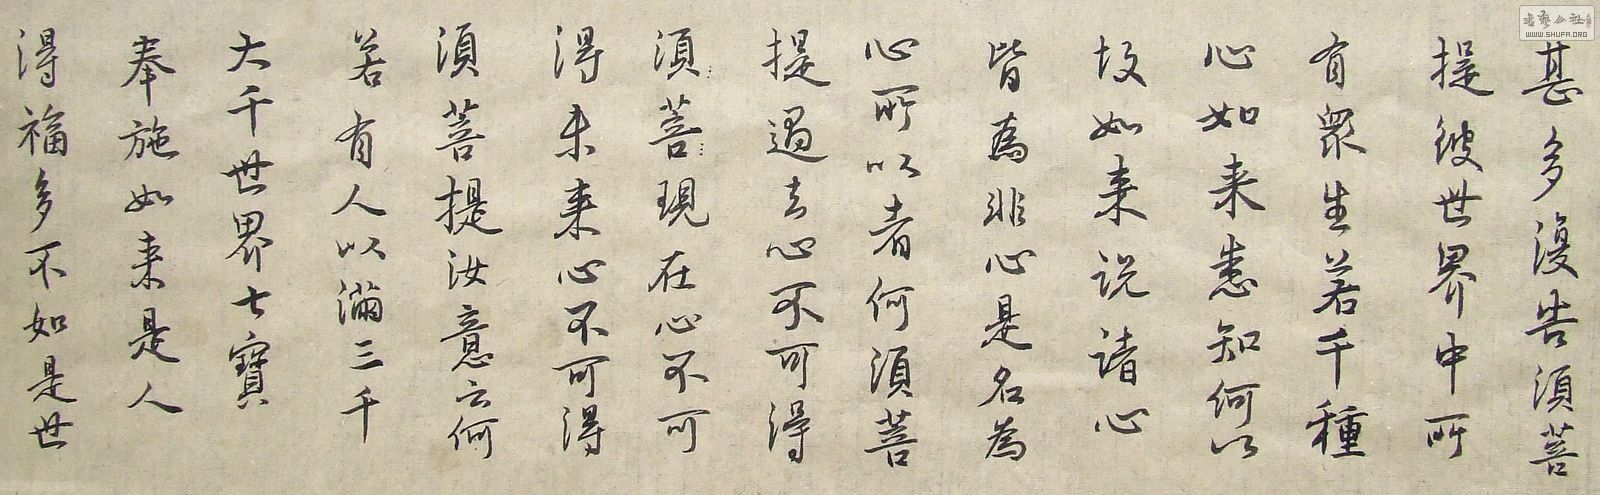 甚多復告須菩
提彼世界中所
有眾生若干種
心如来悉知何以
故如来说诸心
皆為非心是名為
心所以者何須菩
提過去心不可得
須菩現在心不可
得未来心不可得
須菩提汝意云何
若有人以滿三千
大千世界七寶
奉施如来是人
得福多不如是世
書藝公社
WWW.SHUFA.ORG